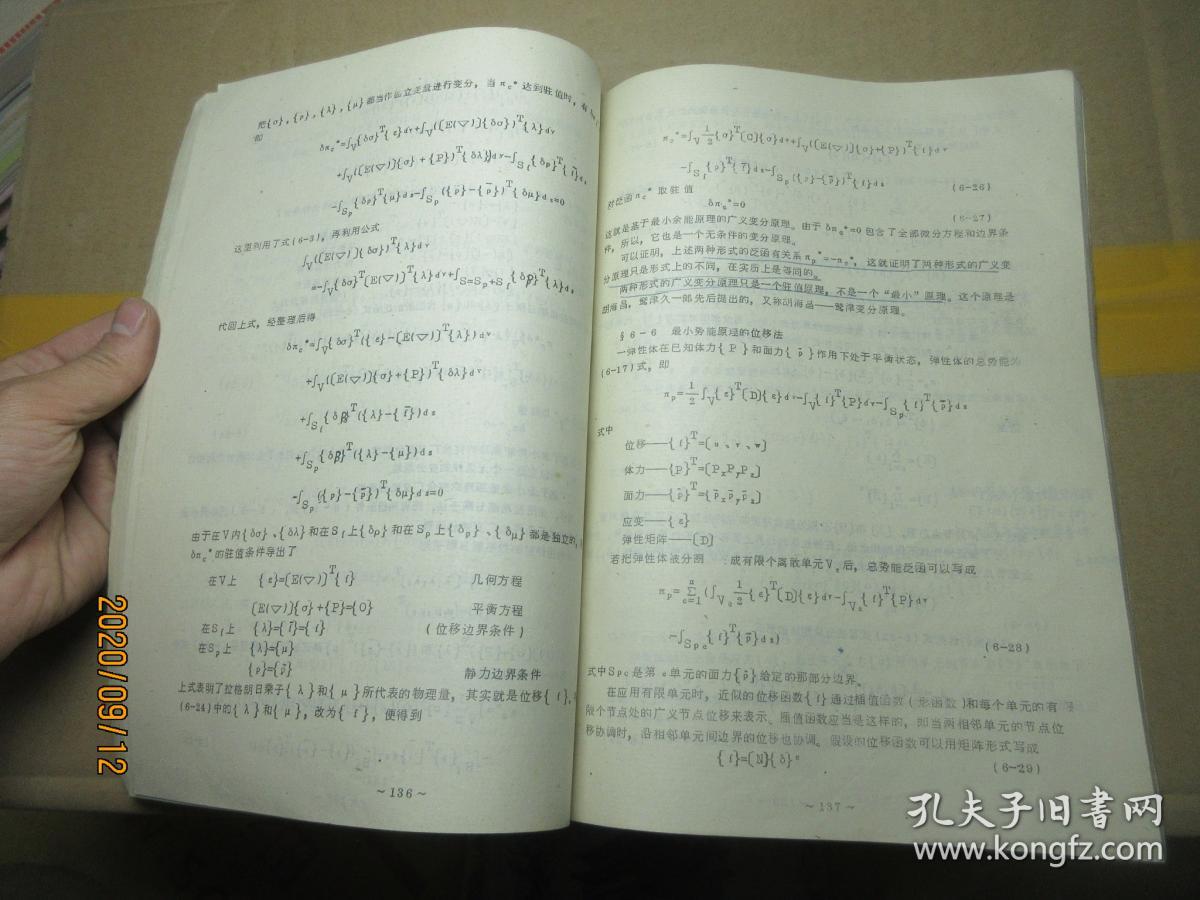 把{σ},{p},{λ},{μ}都当作独立变量进行变分,当π_c*达到驻值时,有
和
δπ_c*=∫_V{δσ}^T{ε}dv+∫_V([E(▽)]{δσ})^T{λ}dv
+∫_V([E(▽)]{σ}+{P})^T{δλ}dv-∫_{S_f}{δp}^T{f̄}ds
-∫_{S_p}{δp}^T{μ}ds-∫_{S_p}({p}-{p̄})^T{δμ}ds=0
这里利用了式(6-3),再利用公式
∫_V([E(▽)]{δσ})^T{λ}dv
=-∫_V{δσ}^T[E(▽)]^T{λ}dv+∫_{S=S_p+S_f}{δp}^T{λ}ds
代回上式,经整理后得
δπ_c*=∫_V{δσ}^T({ε}-[E(▽)]^T{λ})dv
+∫_V([E(▽)]{σ}+{P})^T{δλ}dv
+∫_{S_f}{δp}^T({λ}-{f̄})ds
+∫_{S_p}{δp}^T({λ}-{μ})ds
-∫_{S_p}({p}-{p̄})^T{δμ}ds=0
由于在V内{δσ}、{δλ}和在S_f上{δp}和在S_p上{δp}、{δμ}都是独立的,
δπ_c*的驻值条件导出了
在V上 {ε}=[E(▽)]^T{f} 几何方程
[E(▽)]{σ}+{P}={0} 平衡方程
在S_f上 {λ}={f̄}={f} (位移边界条件)
在S_p上 {λ}={μ}
{p}={p̄} 静力边界条件
上式表明了拉格朗日乘子{λ}和{μ}所代表的物理量,其实就是位移{f},
(6-24)中的{λ}和{μ},改为{f},便得到
~136~
π_c*=∫_V 1/2{σ}^T[C]{σ}dv+∫_V([E(▽)]{σ}+{P})^T{f}dv
-∫_{S_f}{p}^T{f̄}ds-∫_{S_p}({p}-{p̄})^T{f}ds (6-26)
对泛函π_c*取驻值
δπ_c*=0 (6-27)
这就是基于最小余能原理的广义变分原理。由于δπ_c*=0包含了全部微分方程和边界条
件,所以,它也是一个无条件的变分原理。
可以证明,上述两种形式的泛函有关系π_p*=-π_c*,这就证明了两种形式的广义变
分原理只是形式上的不同,在实质上是等同的。
两种形式的广义变分原理只是一个驻值原理,不是一个“最小”原理。这个原理是
胡海昌,鹫津久一郎先后提出的,又称胡海昌——鹫津变分原理。
§6-6 最小势能原理的位移法
一弹性体在已知体力{P}和面力{p̄}作用下处于平衡状态,弹性体的总势能为
(6-17)式,即
π_p=1/2∫_V{ε}^T[D]{ε}dv-∫_V{f}^T{P}dv-∫_{S_p}{f}^T{p̄}ds
式中
位移——{f}^T=[u、v、w]
体力——{P}^T=[P_xP_yP_z]
面力——{p̄}^T={p̄_xp̄_yp̄_z]
应变——{ε}
弹性矩阵——[D]
若把弹性体被分割 成有限个离散单元V_e后,总势能泛函可以写成
π_p=Σ_{e=1}^n(∫_{V_e}1/2{ε}^T[D]{ε}dv-∫_{V_e}{f}^T{P}dv
-∫_{S_{pe}}{f}^T{p̄}ds) (6-28)
式中Spe是第e单元的面力{p̄}给定的那部分边界。
在应用有限单元时,近似的位移函数{f}通过插值函数(形函数)和每个单元的有
限个节点处的广义节点位移来表示。插值函数应当是这样的,即当两相邻单元的节点位
移协调时,沿相邻单元间边界的位移也协调。假设的位移函数可以用矩阵形式写成
{f}=[N]{δ}^e (6-29)
~137~
2020/09/12
孔夫子旧书网
www.kongfz.com